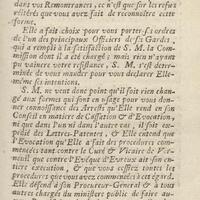 dans vos Remontrances, ce n'est que sur les refus
réitérés que vous avez fait de reconnoître cette
forme.
Elle a fait choix pour vous porter ses ordres
de l'un des principaux Officiers de sa Garde,
qui a rempli à la satisfaction de S. M. la Com-
mission dont il a été chargé; mais rien n'ayant
pu vaincre votre résistance, S. M. s'est déter-
minée de vous mander pour vous déclarer Elle-
même ses intentions.
S. M. ne veut donc point qu'il soit rien chan-
gé aux formes qui sont en usage pour vous don-
ner connoissance des Arrests qu'Elle rend en son
Conseil en matiere de Cassation & d'Evocation,
ni que dans l'un ni dans l'autre cas, il soit expé-
dié des Lettres-Patentes, & Elle entend que
l'Evocation qu'Elle a fait des procedures com-
mencées tant contre le Curé & Vicaire de Ver-
neuil que contre l'Evêque d'Evreux ait son en-
tiere exécution, & que vous cessiez toutes les
procedures que vous avez commencées à cet égard.
Elle défend à son Procureur-General & à tous
autres chargés du ministere public de faire au-